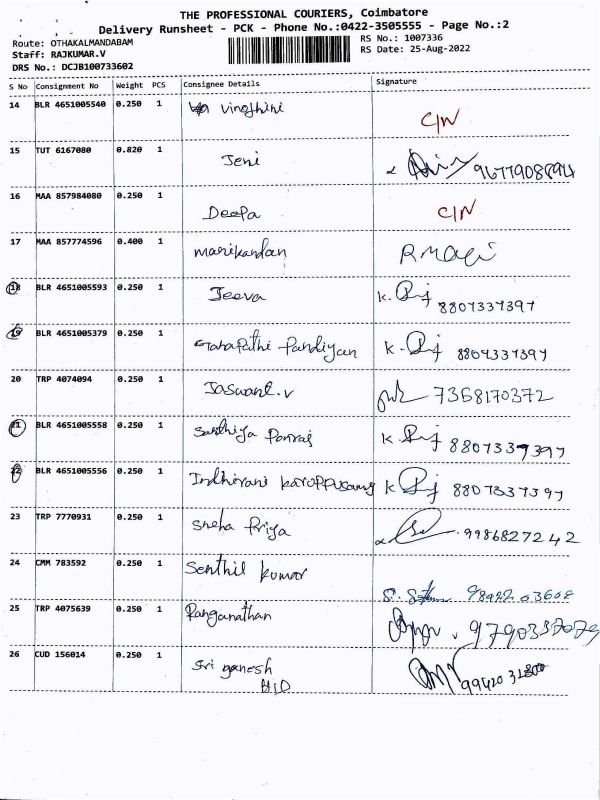 THE PROFESSIONAL COURIERS, Coimbatore
Delivery Runsheet - PCK - Phone No.:0422-3505555 - Page No.:2
Route: OTHAKALMANDABAM RS No.: 1007336
Staff: RAJKUMAR.V RS Date: 25-Aug-2022
DRS No.: DCJB100733602
S No Consignment No Weight PCS Consignee Details Signature
14 BLR 4651005540 0.250 1 Vinothini C/N
15 TUT 6167080 0.820 1 Jeni
16 MAA 857984080 0.250 1 Deepa C/N
17 MAA 857774596 0.400 1 Manikandan
18 BLR 4651005593 0.250 1 Jeeva 8807337397
19 BLR 4651005379 0.250 1 Pandiyan
20 TRP 4074094 0.250 1 Jaswant.v 7358170372
21 BLR 4651005558 0.250 1 8807337397
22 BLR 4651005556 0.250 1 Indhirani Karuppusamy 8807337397
23 TRP 7770931 0.250 1 Sneha Priya 9986827242
24 CMM 783592 0.250 1 Senthil kumar
25 TRP 4075639 0.250 1 Ranganathan
26 CUD 156014 0.250 1 Sri ganesh